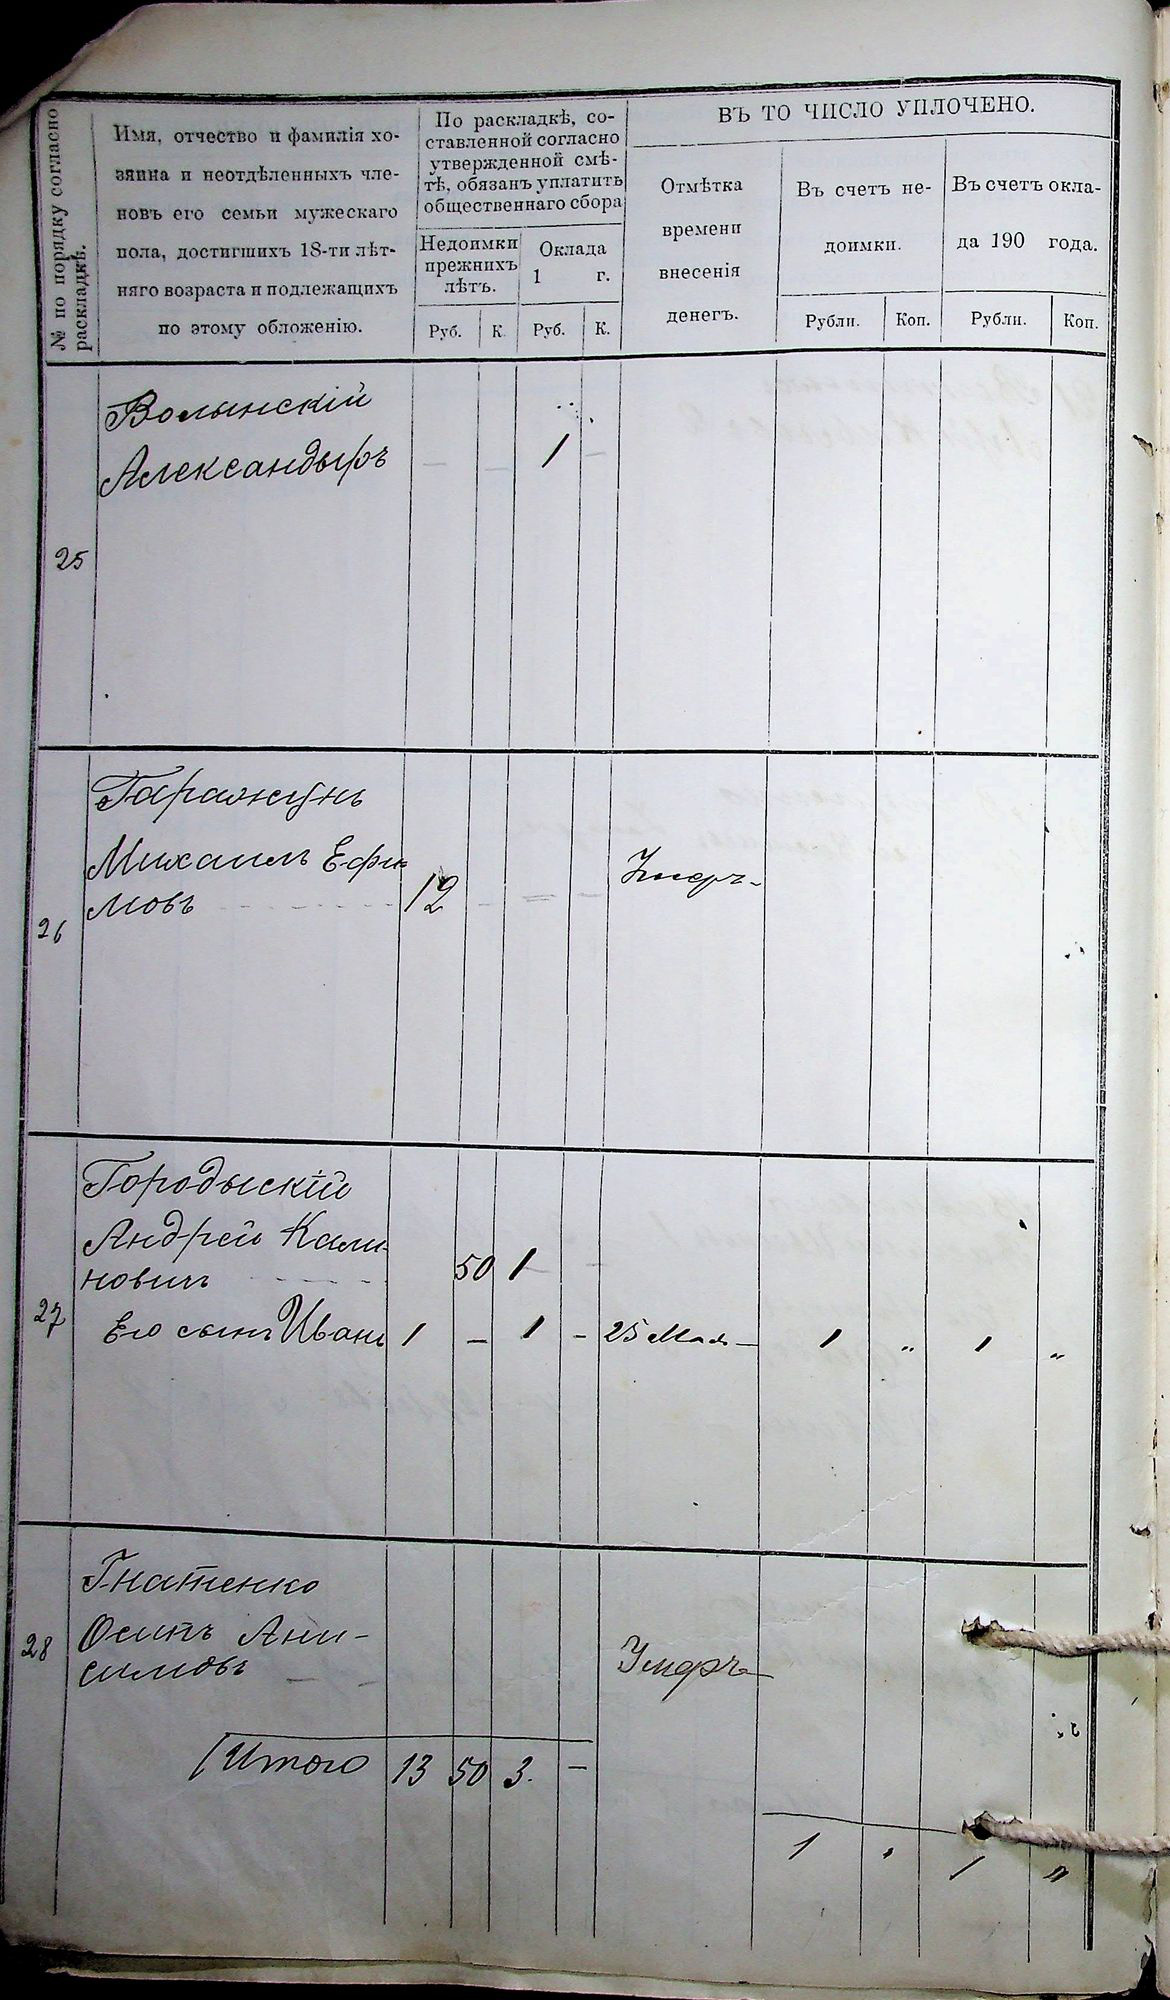 № по порядку согласно
раскладкѣ.
Имя, отчество и фамилія хо-
зяина и неотдѣленныхъ чле-
новъ его семьи мужескаго
пола, достигшихъ 18-ти лѣт-
няго возраста и подлежащихъ
по этому обложенію.
По раскладкѣ, со-
ставленной согласно
утвержденной смѣ-
тѣ, обязанъ уплатить
общественнаго сбора
Недоимки
прежнихъ
лѣтъ.
Оклада
1 г.
Руб. К. Руб. К.
ВЪ ТО ЧИСЛО УПЛОЧЕНО.
Отмѣтка
времени
внесенія
денегъ.
Въ счетъ не-
доимки.
Въ счетъ окла-
да 190 года.
Рубли. Коп. Рубли. Коп.
Волынскій
Александыръ — — 1 —
25
Гаражунъ
Михаилъ Ефи-
мовъ 12 — = — Умеръ-
26
Городыскій
Андрей Кали-
новичъ 50 1 — -
27 Его сынъ Иванъ 1 — 1 - 25 Мая — 1 „ 1 „
Гнатенко
28 Осипъ Ани-
симовъ — Умеръ-
Итого 13 50 3. —
1 „ 1 „